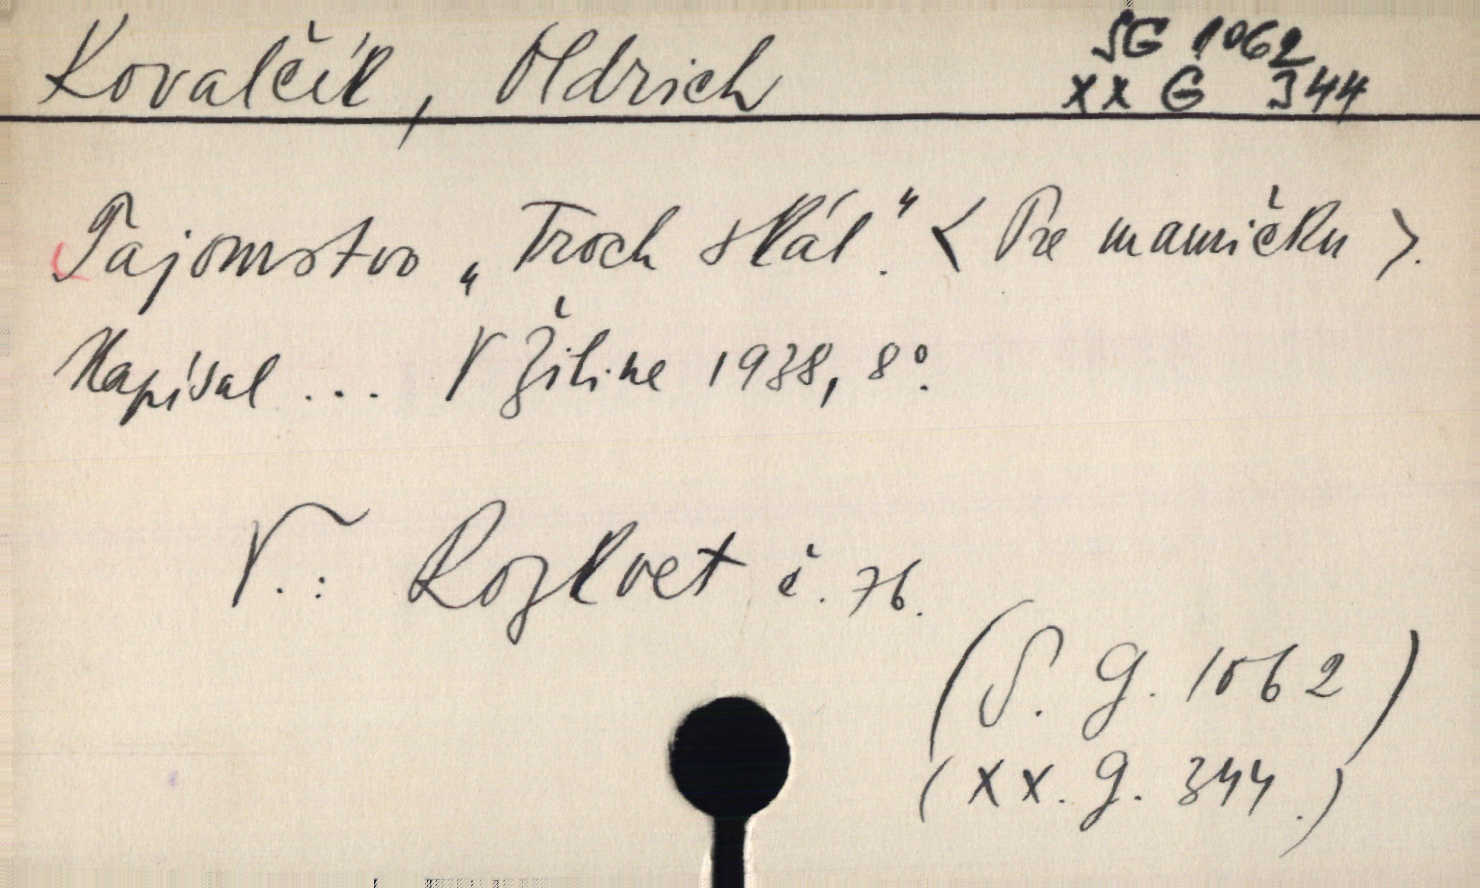 Kovalčík, Oldrich
SG 1062
xx G 344
Tajomstvo „Troch skál“. < Pre mamičku >.
Napísal ... V Žiline 1938, 8°.
V.: Rozkvet č. 76.
(S. G. 1062)
(XX. G. 344.)